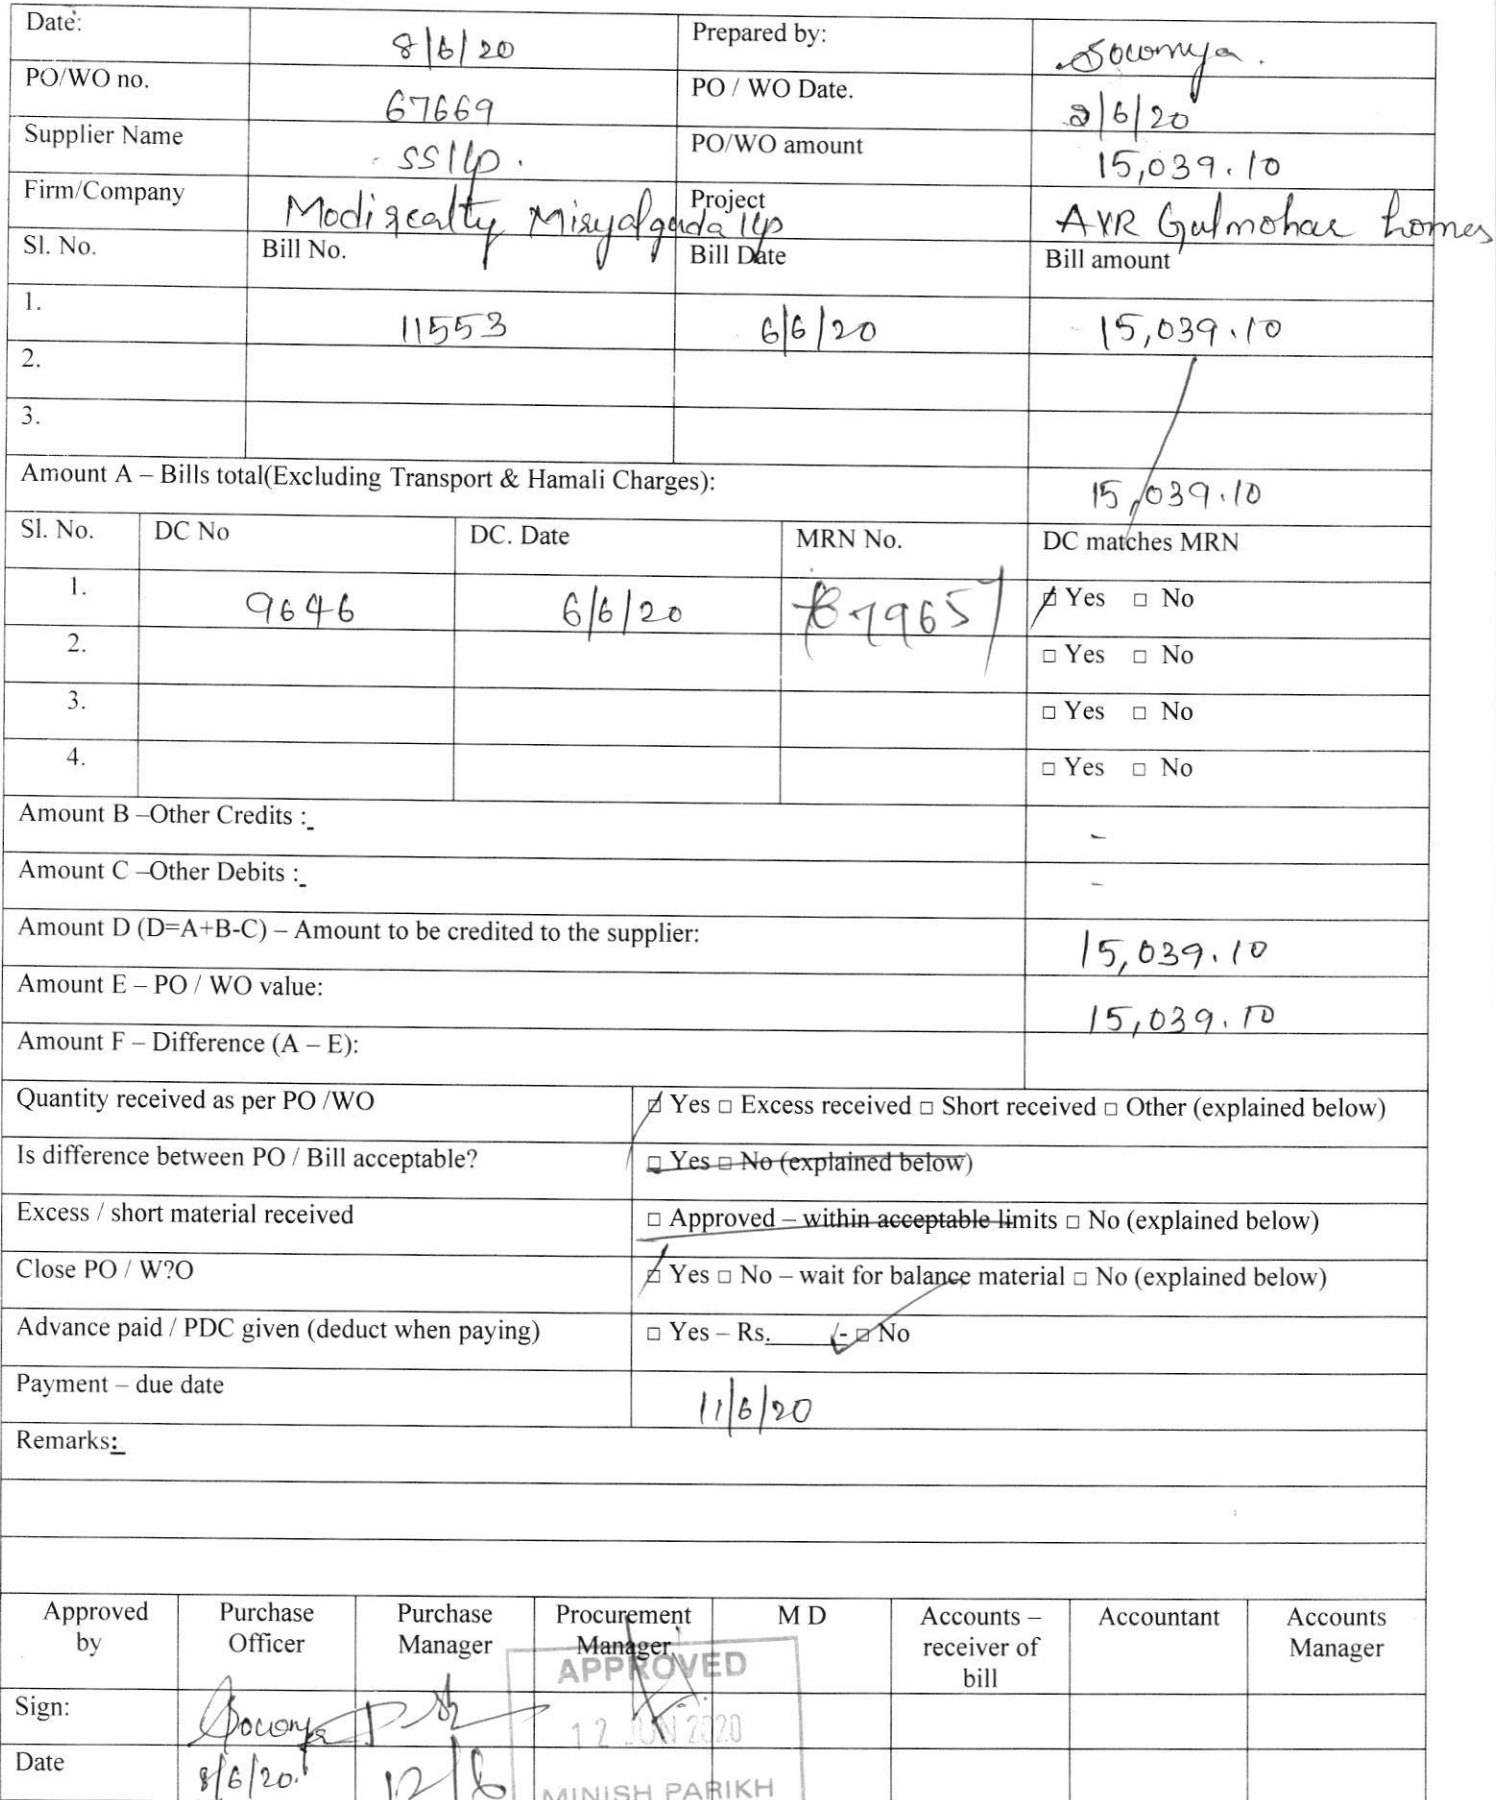 Date: 8/6/20 Prepared by: Sowmya.
PO/WO no. 67669 PO / WO Date. 2/6/20
Supplier Name SSllp. PO/WO amount 15,039.10
Firm/Company Modirealty Miryalguda llp Project AVR Gulmohar homes
Sl. No. Bill No. Bill Date Bill amount
1. 11553 6/6/20 15,039.10
2.
3.
Amount A – Bills total(Excluding Transport & Hamali Charges): 15,039.10
Sl. No. DC No DC. Date MRN No. DC matches MRN
1. 9646 6/6/20 □ Yes □ No
2. □ Yes □ No
3. □ Yes □ No
4. □ Yes □ No
Amount B –Other Credits : -
Amount C –Other Debits : -
Amount D (D=A+B-C) – Amount to be credited to the supplier: 15,039.10
Amount E – PO / WO value: 15,039.10
Amount F – Difference (A – E):
Quantity received as per PO /WO □ Yes □ Excess received □ Short received □ Other (explained below)
Is difference between PO / Bill acceptable? □ Yes □ No (explained below)
Excess / short material received □ Approved – within acceptable limits □ No (explained below)
Close PO / W?O □ Yes □ No – wait for balance material □ No (explained below)
Advance paid / PDC given (deduct when paying) □ Yes – Rs.____/- □ No
Payment – due date 11/6/20
Remarks:
Approved by Purchase Officer Purchase Manager Procurement Manager M D Accounts – receiver of bill Accountant Accounts Manager
APPROVED
Sign: Sowmya
12 JUN 2020
Date 8/6/20. 12/6
MINISH PARIKH